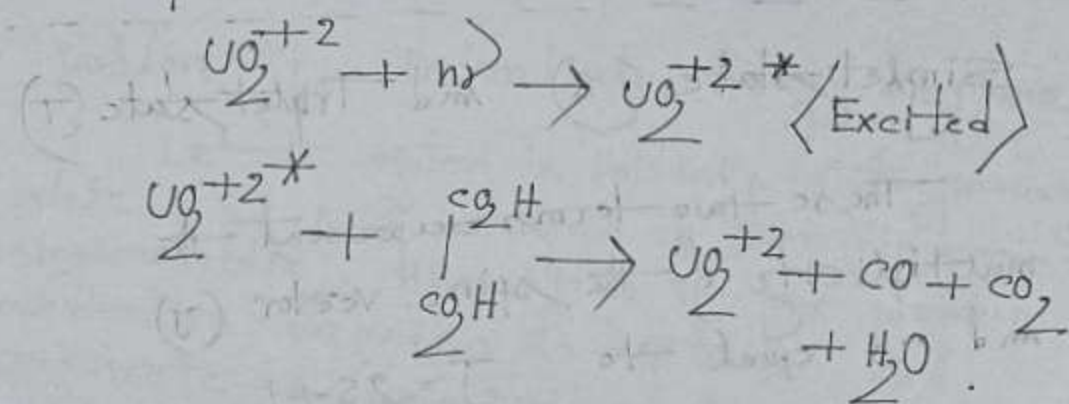 UO₂⁺² + hν → UO₂⁺² * <Excited>
UO₂⁺²* + CO₂H
|
CO₂H → UO₂⁺² + CO + CO₂
+ H₂O .